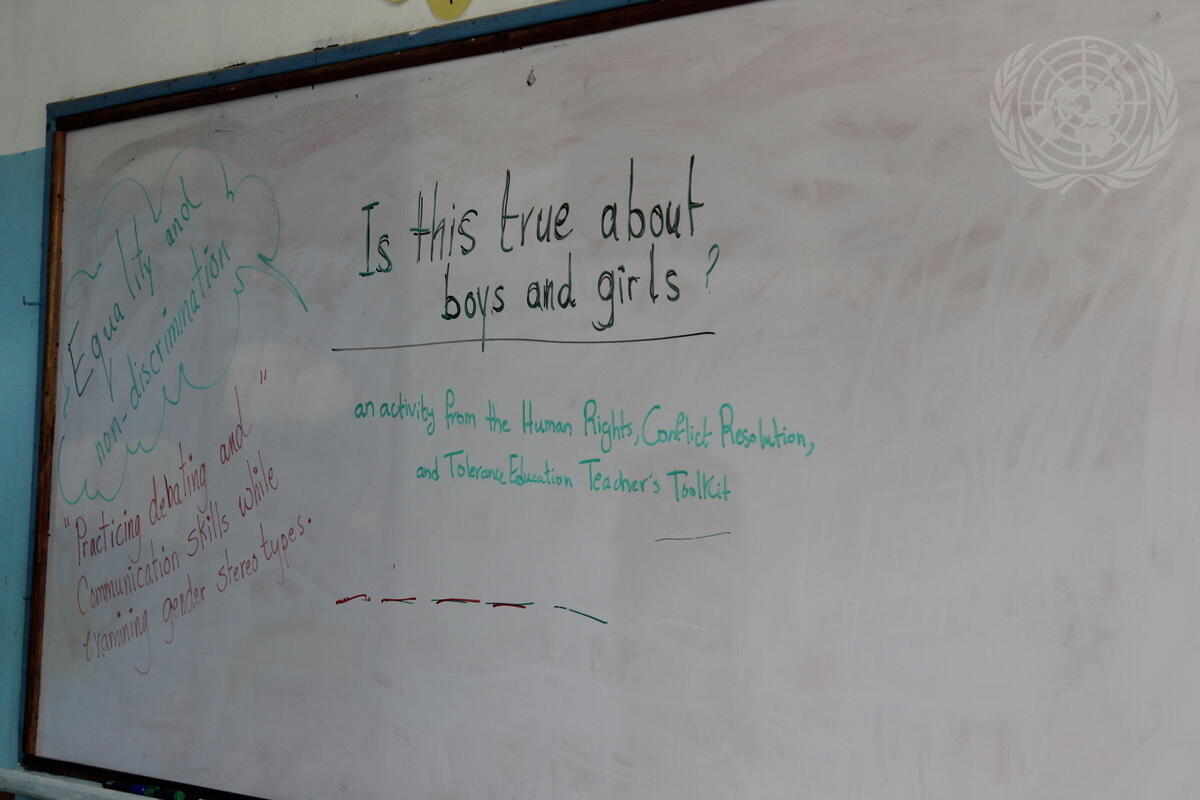 Is this true about
boys and girls?
an activity from the Human Rights, Conflict Resolution,
and Tolerance Education Teacher's Toolkit
Equality and
non-discrimination
"Practicing debating and"
Communication skills while
examining gender stereotypes.